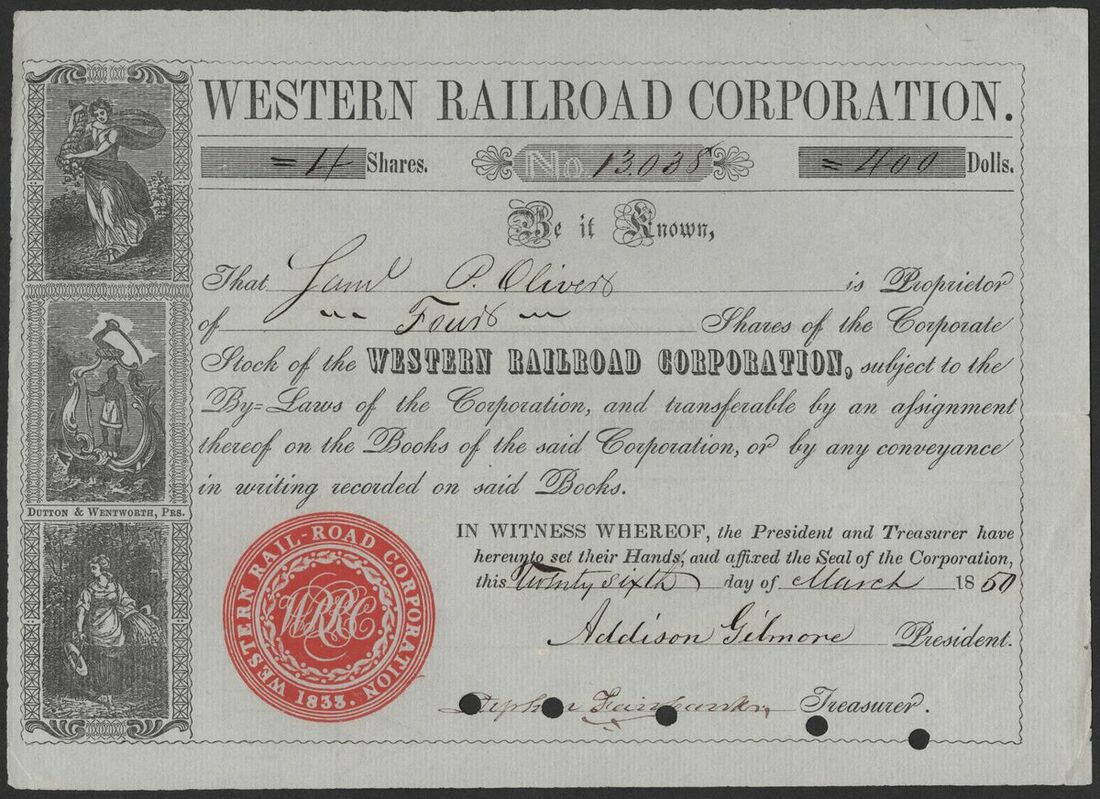 WESTERN RAILROAD CORPORATION.
= 4 Shares. No. 13.038 = 400 Dolls.
Be it Known,
That Saml P. Oliver is Proprietor
of Four Shares of the Corporate
Stock of the WESTERN RAILROAD CORPORATION, subject to the
By=Laws of the Corporation, and transferable by an aſsignment
thereof on the Books of the said Corporation, or by any conveyance
in writing recorded on said Books.
DUTTON & WENTWORTH, PRS.
IN WITNESS WHEREOF, the President and Treasurer have
hereunto set their Hands, and affixed the Seal of the Corporation,
this Twenty sixth day of March 1850
Addison Gilmore President.
Stephen Fairbanks, Treasurer.
WESTERN RAIL-ROAD CORPORATION
WRRC
1833.